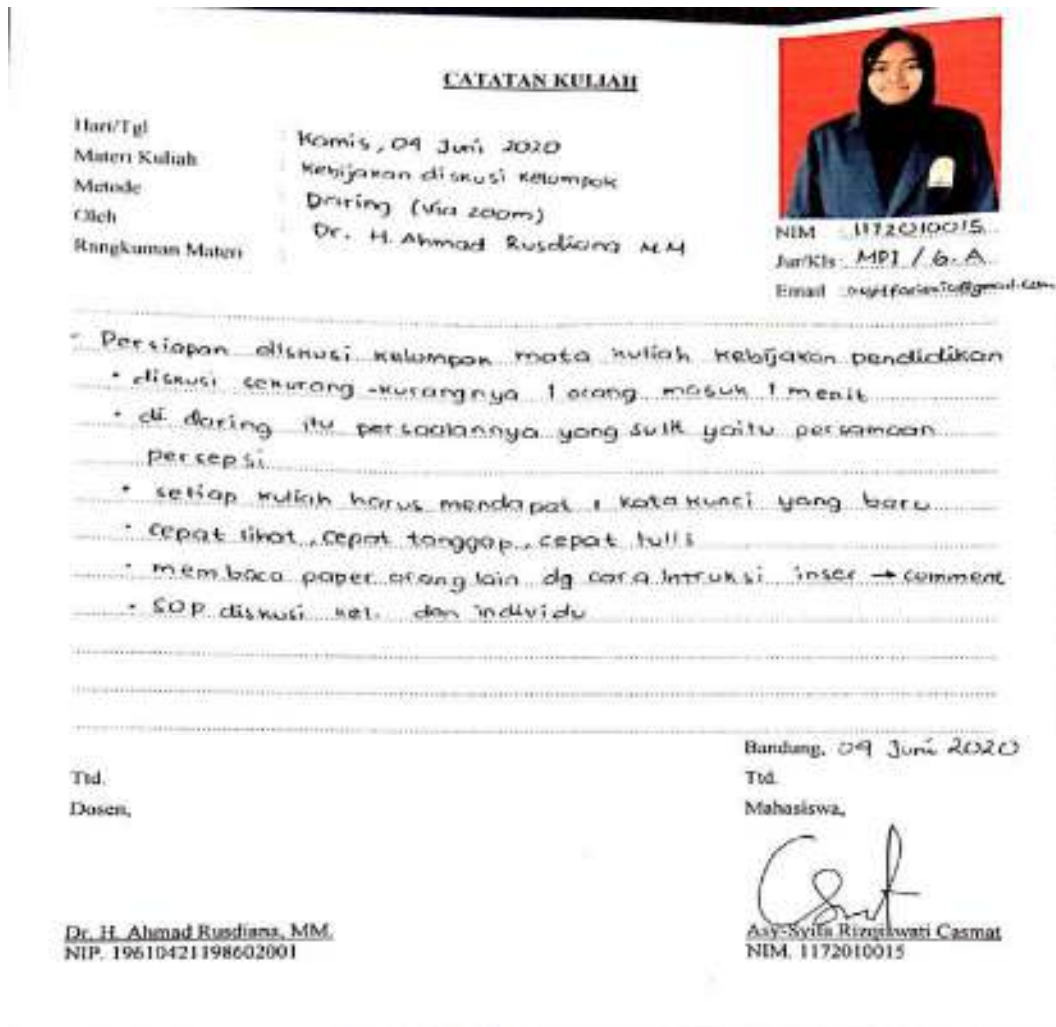 CATATAN KULIAH
Hari/Tgl : Kamis, 04 Juni 2020
Materi Kuliah : Kebijakan diskusi kelompok
Metode : Daring (via zoom)
Oleh : Dr. H. Ahmad Rusdiana MM
Rangkuman Materi :
NIM : 1172010015
Jur/Kls : MPI / 6.A
Email :
- Persiapan diskusi kelompok mata kuliah kebijakan pendidikan
• diskusi sekurang-kurangnya 1 orang masuk 1 menit
• di daring itu persoalannya yang sulit yaitu persamaan
persepsi
• setiap kuliah harus mendapat 1 kata kunci yang baru
• cepat lihat, cepat tanggap, cepat tulis
• membaca paper orang lain dg cara intruksi inser → comment
• SOP diskusi kel. dan individu
Bandung, 04 Juni 2020
Ttd.
Dosen,
Ttd.
Mahasiswa,
Dr. H. Ahmad Rusdiana, MM.
NIP. 19610421198602001
Asy-Syifa Rizqiawati Casmat
NIM. 1172010015